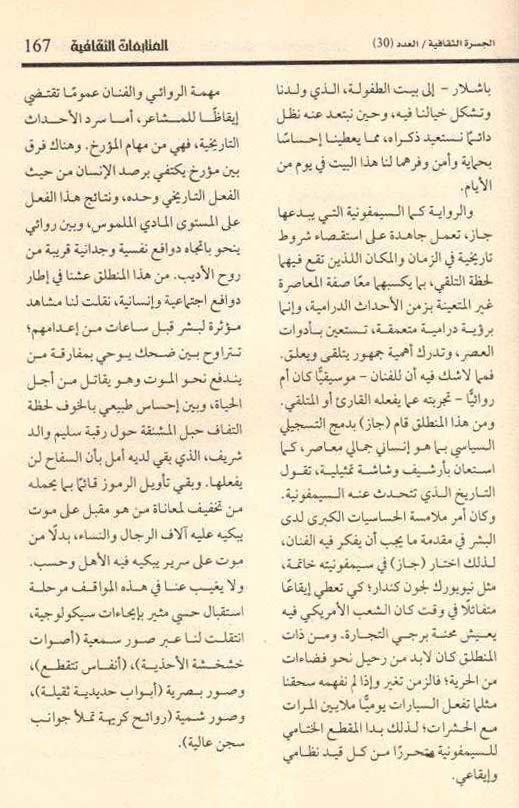 الجسرة الثقافية / العدد (30)
المتابعات الثقافية 167
باشلار - إلى بيت الطفولة، الذي ولدنا
وتشكل خيالنا فيه، وحين نبتعد عنه نظل
دائمًا نستعيد ذكراه، مما يعطينا إحساسًا
بحماية وأمن وفرهما لنا هذا البيت في يوم من
الأيام.
والرواية كما السيمفونية التي يبدعها
جاز، تعمل جاهدة على استقصاء شروط
تاريخية في الزمان والمكان اللذين تقع فيهما
لحظة التلقي، بما يكسبهما معًا صفة المعاصرة
غير المتعينة بزمن الأحداث الدرامية، وإنما
برؤية درامية متعمقة، تستعين بأدوات
العصر، وتدرك أهمية جمهور يتلقى ويعلق.
فمما لاشك فيه أن للفنان - موسيقيًّا كان أم
روائيًّا - تجربته عما يفعله القارئ أو المتلقي.
ومن هذا المنطلق قام (جاز) بدمج التسجيلي
السياسي بما هو إنساني جمالي معاصر، كما
استعان بأرشيف وشاشة تمثيلية، تقول
التاريخ الذي تتحدث عنه السيمفونية.
وكان أمر ملامسة الحساسيات الكبرى لدى
البشر في مقدمة ما يجب أن يفكر فيه الفنان،
لذلك اختار (جاز) في سيمفونيته خاتمة،
مثل نيويورك لجون كندار؛ كي تعطي إيقاعًا
متفائلًا في وقت كان الشعب الأمريكي فيه
يعيش محنة برجي التجارة. ومن ذات
المنطلق كان لابد من رحيل نحو فضاءات
من الحرية؛ فالزمن تغير وإذا لم نفهمه سحقنا
مثلما تفعل السيارات يوميًّا ملايين المرات
مع الحشرات؛ لذلك بدا المقطع الختامي
للسيمفونية متحررًا من كل قيد نظامي
وإيقاعي.
مهمة الروائي والفنان عمومًا تقتضي
إيقاظًا للمشاعر، أما سرد الأحداث
التاريخية، فهي من مهام المؤرخ. وهناك فرق
بين مؤرخ يكتفي برصد الإنسان من حيث
الفعل التاريخي وحده، ونتائج هذا الفعل
على المستوى المادي الملموس، وبين روائي
ينحو باتجاه دوافع نفسية وجدانية قريبة من
روح الأديب. من هذا المنطلق عشنا في إطار
دوافع اجتماعية وإنسانية، نقلت لنا مشاهد
مؤثرة لبشر قبل ساعات من إعدامهم؛
تتراوح بين ضحك يوحي بمفارقة من
يندفع نحو الموت وهو يقاتل من أجل
الحياة، وبين إحساس طبيعي بالخوف لحظة
التفاف حبل المشنقة حول رقبة سليم والد
شريف، الذي يقي لديه أمل بأن السفاح لن
يفعلها. وبقي تأويل الرموز قائمًا بما يحمله
من تخفيف لمعاناة من هو مقبل على موت
يبكيه عليه آلاف الرجال والنساء، بدلًا من
موت على سرير يبكيه فيه الأهل وحسب.
ولا يغيب عنا في هذه المواقف مرحلة
استقبال حسي مثير بإيحاءات سيكولوجية،
انتقلت لنا عبر صور سمعية (أصوات
خشخشة الأحذية)، (أنفاس تتقطع)،
وصور بصرية (أبواب حديدية ثقيلة)،
وصور شمية (روائح كريهة تملأ جوانب
سجن عالية).